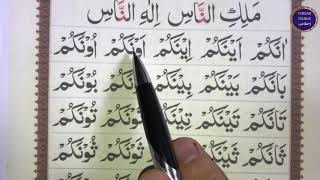 مَلِكِ النَّاسِ اِلٰهِ النَّاسِ
اٰنَكُمْ اَيْنَكُمْ اِيْنَكُمْ اَوْنَكُمْ اُوْنَكُمْ
بَانَكُمْ بَيْنَكُمْ بِيْنَكُمْ بَوْنَكُمْ بُوْنَكُمْ
تَانَكُمْ تَيْنَكُمْ تِيْنَكُمْ تَوْنَكُمْ تُوْنَكُمْ
ثَانَكُمْ ثَيْنَكُمْ ثِيْنَكُمْ ثَوْنَكُمْ ثُوْنَكُمْ